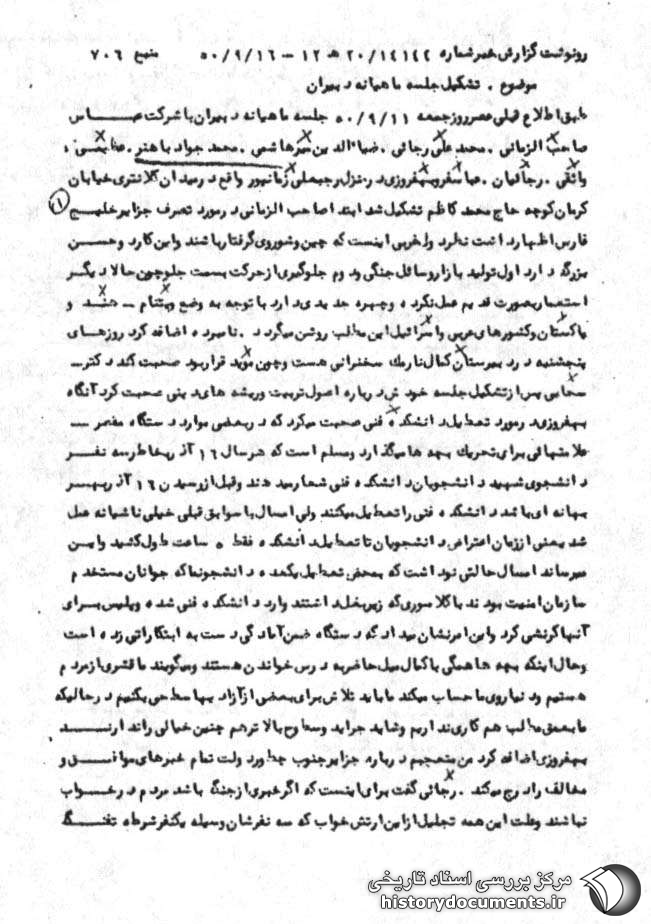 رونوشت گزارش خبر شماره ۲۰/۱۴۱۴۴ هـ ۱۲ – ۵۰/۹/۱۶ منبع ۷۰۶
موضوع . تشکیل جلسه ماهیانه دبیران
طبق اطلاع قبلی عصر روز جمعه ۵۰/۹/۱۱ جلسه ماهیانه دبیران با شرکت عباس
صاحب الزمانی . محمد علی رجائی . ضیاءالدین میرهاشمی . محمد جواد باهنر .
واثقی . رجائیان . عباسقر و بهفروزی در منزل رجبعلی زمانپور واقع در میدان کلانتری خیابان
(۱)
کرمان کوچه حاج محمد کاظم تشکیل شد ابتدا صاحب الزمانی در مورد تصرف جزایر خلیج
فارس اظهار داشت نظر دولت غربی اینست که چین و شوروی گرفتار باشند و این کار دو حسن
بزرگ دارد اول تولید بازار وسائل جنگی و دوم جلوگیری از حرکت بسمت جلو چون حالا دیگر
استعمار بصورت قدیم عمل نکرده و چهره جدیدی دارد با توجه به وضع ویتنام – هند و
پاکستان و کشورهای عربی و اسرائیل این مطلب روشن میگردد . نامبرده اضافه کرد روزهای
پنجشنبه در دبیرستان کمال نارمک سخنرانی هست و چون موید قرار بود صحبت کند دکتر –
سحابی پس از تشکیل جلسه خودش درباره اصول تربیت و ریشه های دینی صحبت کرد آنگاه
بهفروزی در مورد تعطیل دانشکده فنی صحبت میکرد که در بعضی موارد دستگاه مقصر –
علامتهائی برای تحریک بچه ها میگذارد و مسلم است که هر سال ۱۶ آذر بخاطر سه نفر
دانشجوی شهید دانشجویان دانشکده فنی شعار میدهند و قبل از رسیدن ۱۶ آذر بهر
بهانه ای باشد دانشکده فنی را تعطیل میکنند ولی امسال با سوابق قبلی خیلی ناشیانه عمل
شد یعنی از زمان اعتراض دانشجویان تا تعطیل دانشکده فقط ۵ ساعت طول کشید و این
میرساند امسال حالتی نبود است که بمحض تعطیل یکعده دانشجونما که جوانان مستخدم
سازمان امنیت بودند با کلاسوری که زیر بغل داشتند وارد دانشکده فنی شده و پلیس برای
آنها کرنشی کرد و این امر نشان میداد که دستگاه ضمن آمادگی دست به ابتکاراتی زده است
و حال اینکه بچه ها همگی با کمال میل حاضر به درس خواندن هستند و میگویند ما قشری از مردم
هستیم و دنیا روی ما حساب میکند ما باید تلاش برای بعضی از آزادیها سطحی بکنیم در حالیکه
ما بعمق مطلب هم کاری نداریم و شاید جراید و سطوح بالاتر هم چنین خیالی را ندارند
بهفروزی اضافه کرد من متعجبم درباره جزایر جنوب چطور دولت تمام خبرهای موافق و
مخالف را درج میکند . رجائی گفت برای اینست که اگر خبری از جنگ باشد مردم در خواب
نباشند وعلت این همه تجلیل از این ارتش خواب که سه نفرشان وسیله یکنفر شرطه تفنگ
مرکز بررسی اسناد تاریخی
historydocuments.ir